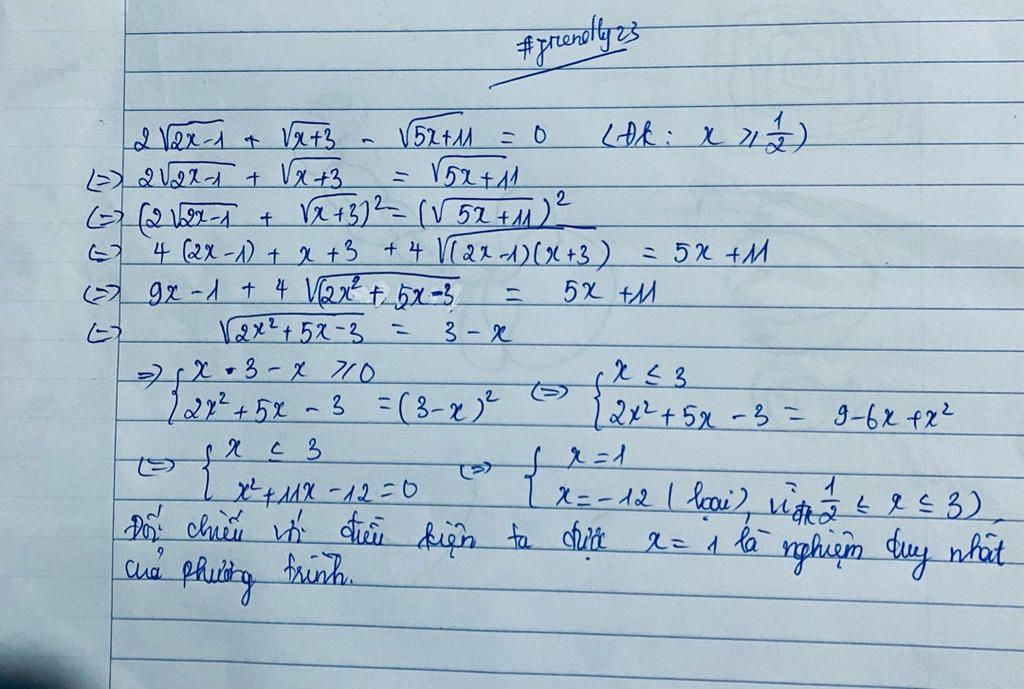 #friendly23
2√(2x-1) + √(x+3) - √(5x+11) = 0 (Đk: x ≥ 1/2)
(=) 2√(2x-1) + √(x+3) = √(5x+11)
(=) (2√(2x-1) + √(x+3))² = (√(5x+11))²
(=) 4(2x-1) + x + 3 + 4√((2x-1)(x+3)) = 5x + 11
(=) 9x - 1 + 4√(2x² + 5x - 3) = 5x + 11
(=) √(2x² + 5x - 3) = 3 - x
=> { x • 3 - x ≥ 0 (=) { x ≤ 3
2x² + 5x - 3 = (3-x)² 2x² + 5x - 3 = 9 - 6x + x²
(=) { x ≤ 3 (=) { x = 1
x² + 11x - 12 = 0 x = -12 (loại), vì đk 1/2 ≤ x ≤ 3)
Đối chiếu với điều kiện ta được x = 1 là nghiệm duy nhất
của phương trình.